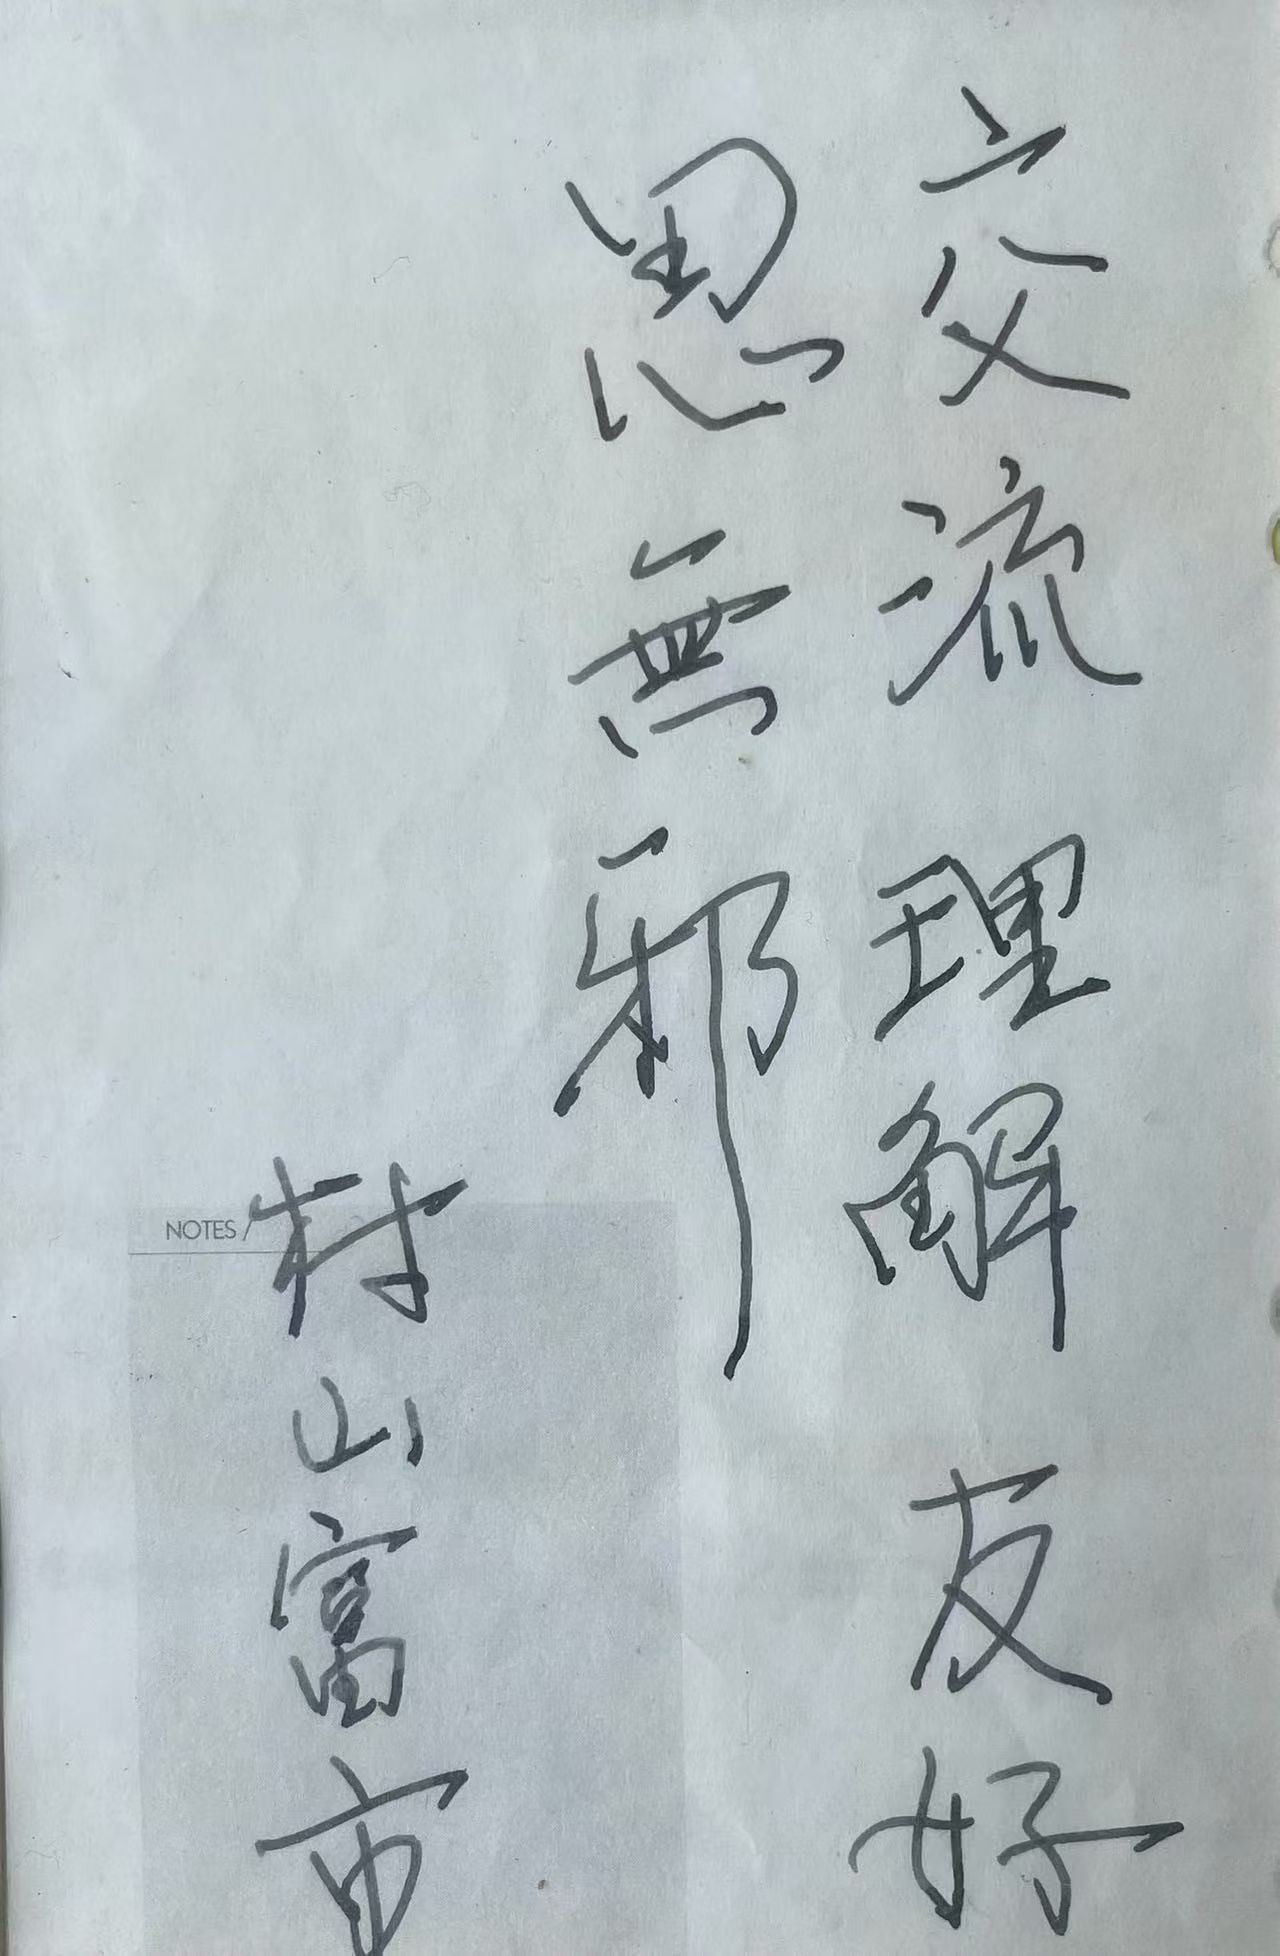 交流 理解 友好
思無邪
村山富市
NOTES/